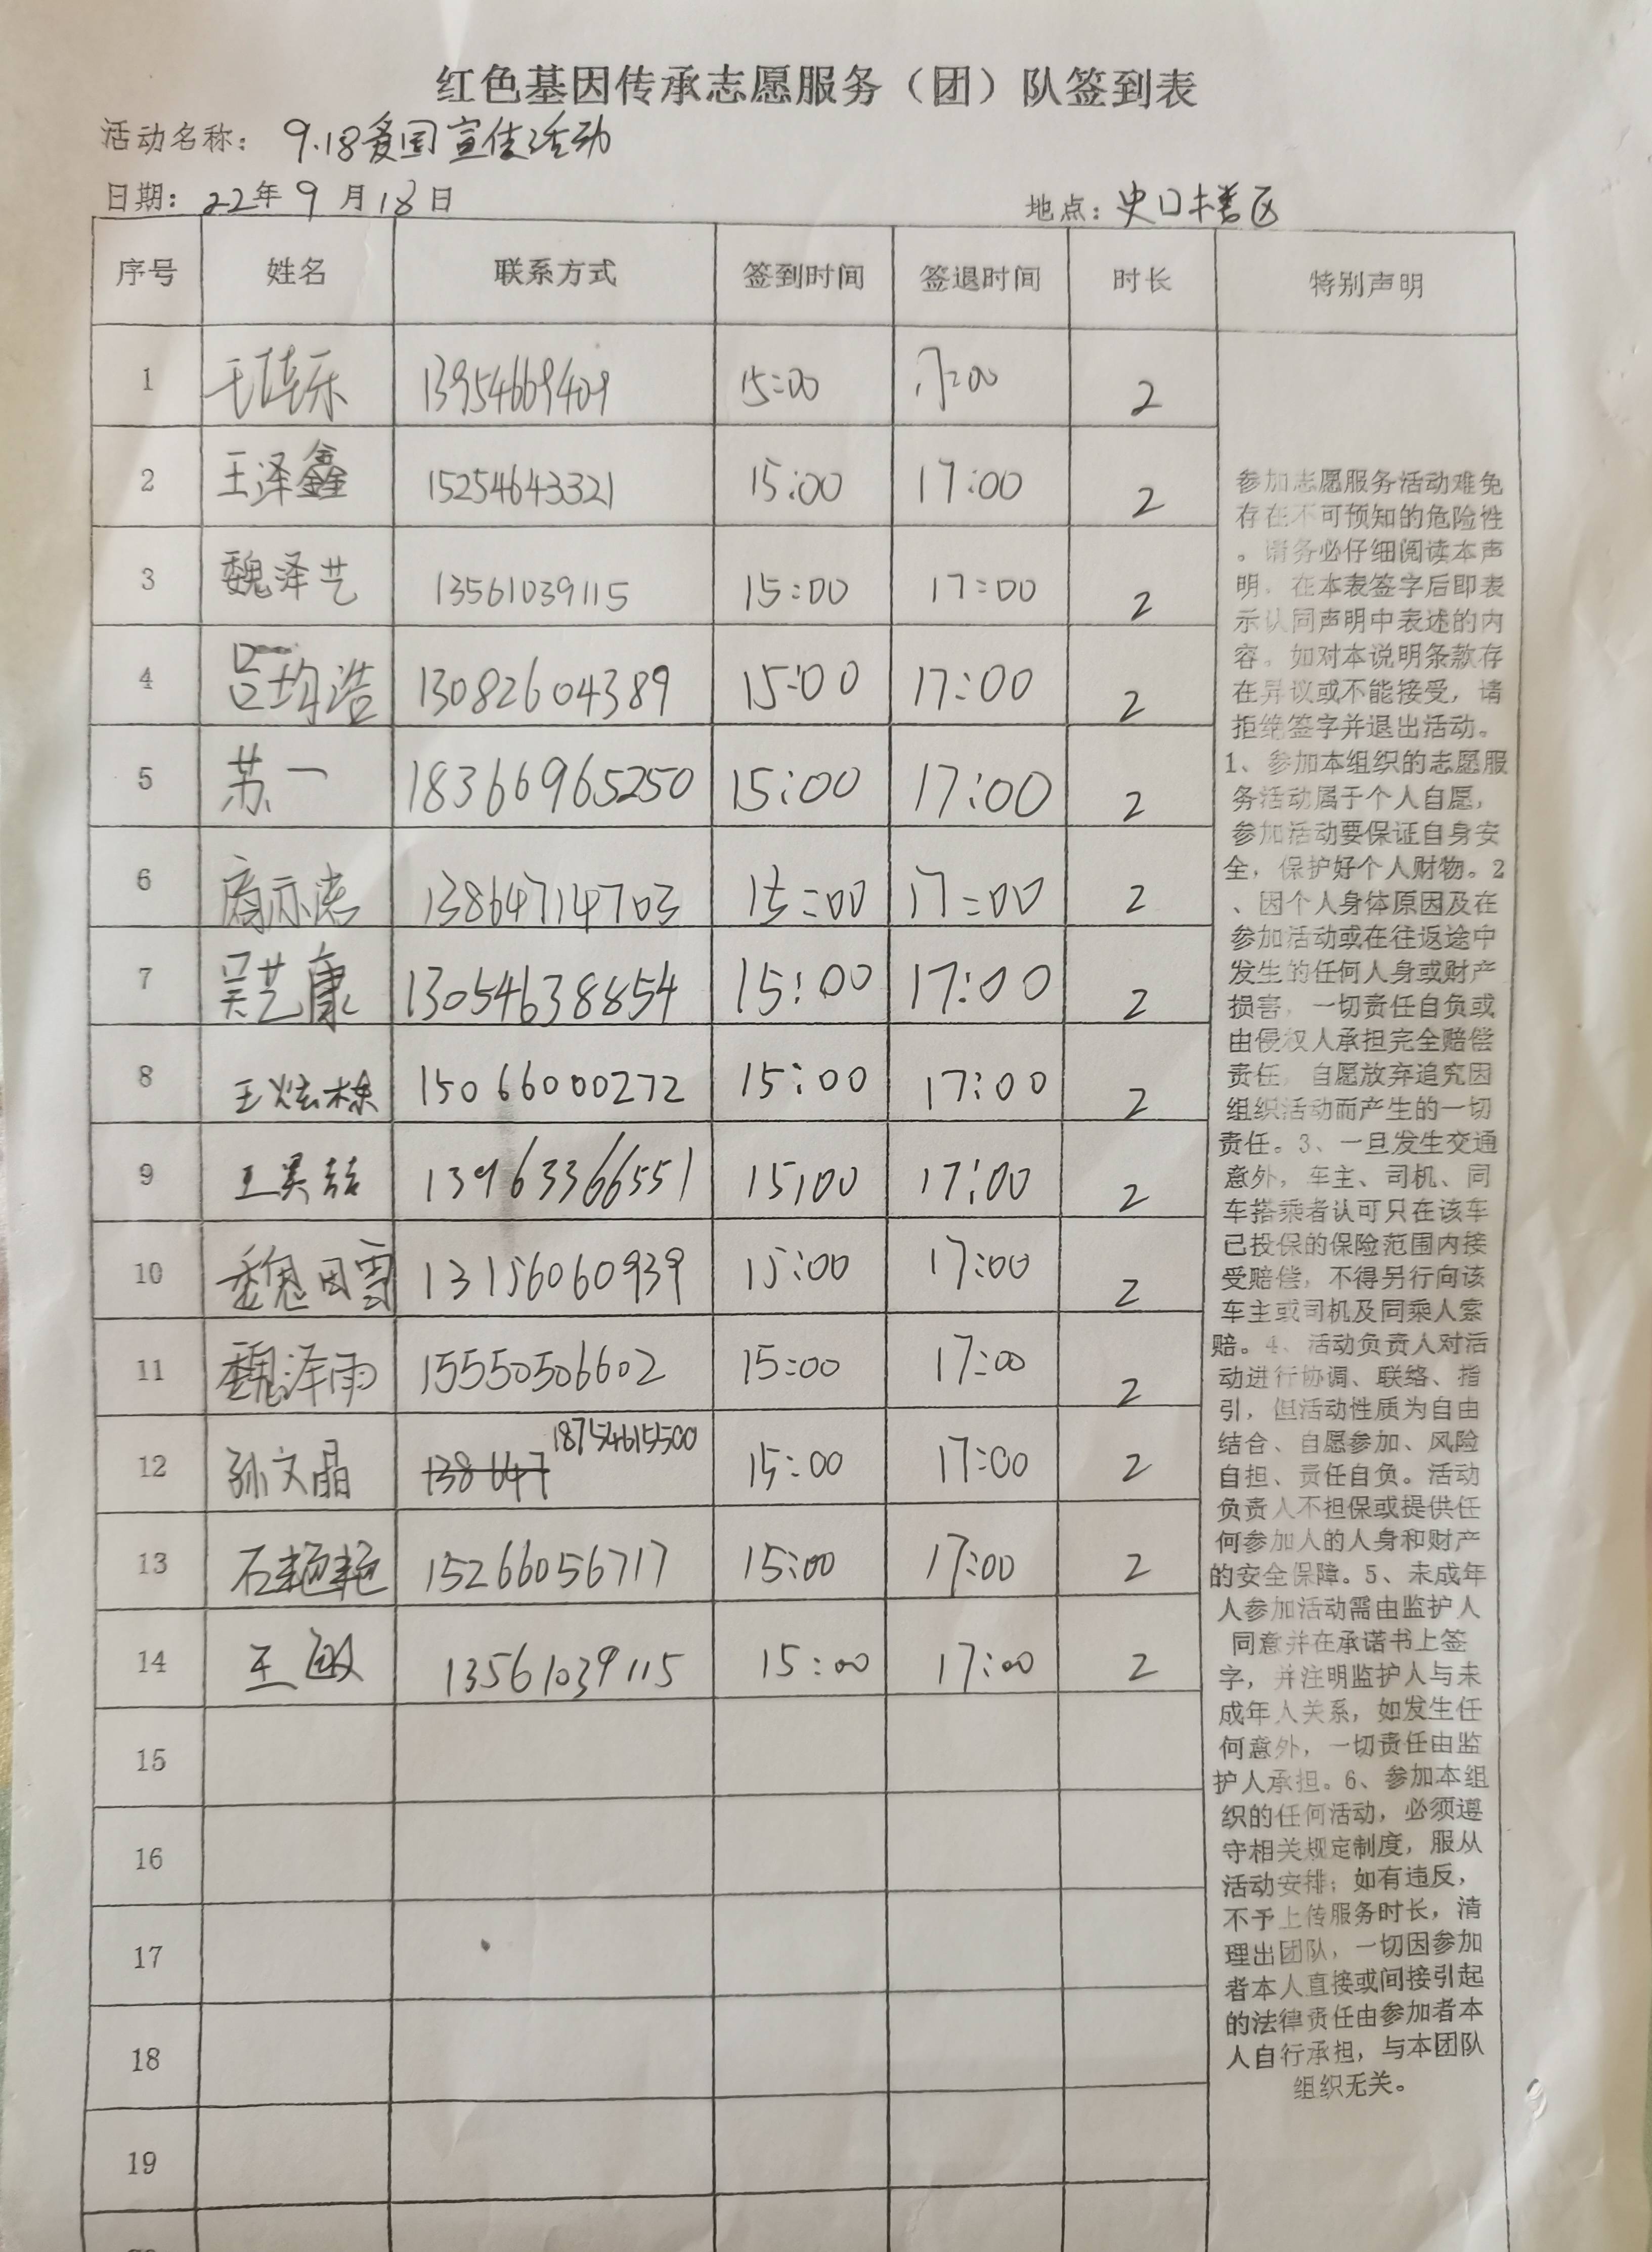 红色基因传承志愿服务（团）队签到表
活动名称：9.18爱国宣传活动
日期：22年9月18日 地点：史口楼区
序号 姓名 联系方式 签到时间 签退时间 时长 特别声明
1 13954669409 15:00 17:00 2
2 王泽鑫 15254643321 15:00 17:00 2
3 魏泽艺 13561039115 15:00 17:00 2
4 吕均浩 13082604389 15:00 17:00 2
5 苏一 18366965250 15:00 17:00 2
6 13864714703 15:00 17:00 2
7 吴艺康 13054638854 15:00 17:00 2
8 王炫栋 15066000272 15:00 17:00 2
9 王昊喆 13963366551 15:00 17:00 2
10 魏田雪 13156060939 15:00 17:00 2
11 魏泽雨 15550506602 15:00 17:00 2
12 孙文晶 138647 18754615500 15:00 17:00 2
13 石艳艳 15266056717 15:00 17:00 2
14 王敏 13561039115 15:00 17:00 2
15
16
17
18
19
参加志愿服务活动难免
存在不可预知的危险性
。请务必仔细阅读本声
明，在本表签字后即表
示认同声明中表述的内
容。如对本说明条款存
在异议或不能接受，请
拒绝签字并退出活动。
1、参加本组织的志愿服
务活动属于个人自愿，
参加活动要保证自身安
全，保护好个人财物。2
、因个人身体原因及在
参加活动或在往返途中
发生的任何人身或财产
损害，一切责任自负或
由侵权人承担完全赔偿
责任，自愿放弃追究因
组织活动而产生的一切
责任。3、一旦发生交通
意外，车主、司机、同
车搭乘者认可只在该车
已投保的保险范围内接
受赔偿，不得另行向该
车主或司机及同乘人索
赔。4、活动负责人对活
动进行协调、联络、指
引，但活动性质为自由
结合、自愿参加、风险
自担、责任自负。活动
负责人不担保或提供任
何参加人的人身和财产
的安全保障。5、未成年
人参加活动需由监护人
同意并在承诺书上签
字，并注明监护人与未
成年人关系，如发生任
何意外，一切责任由监
护人承担。6、参加本组
织的任何活动，必须遵
守相关规定制度，服从
活动安排；如有违反，
不予上传服务时长，清
理出团队，一切因参加
者本人直接或间接引起
的法律责任由参加者本
人自行承担，与本团队
组织无关。